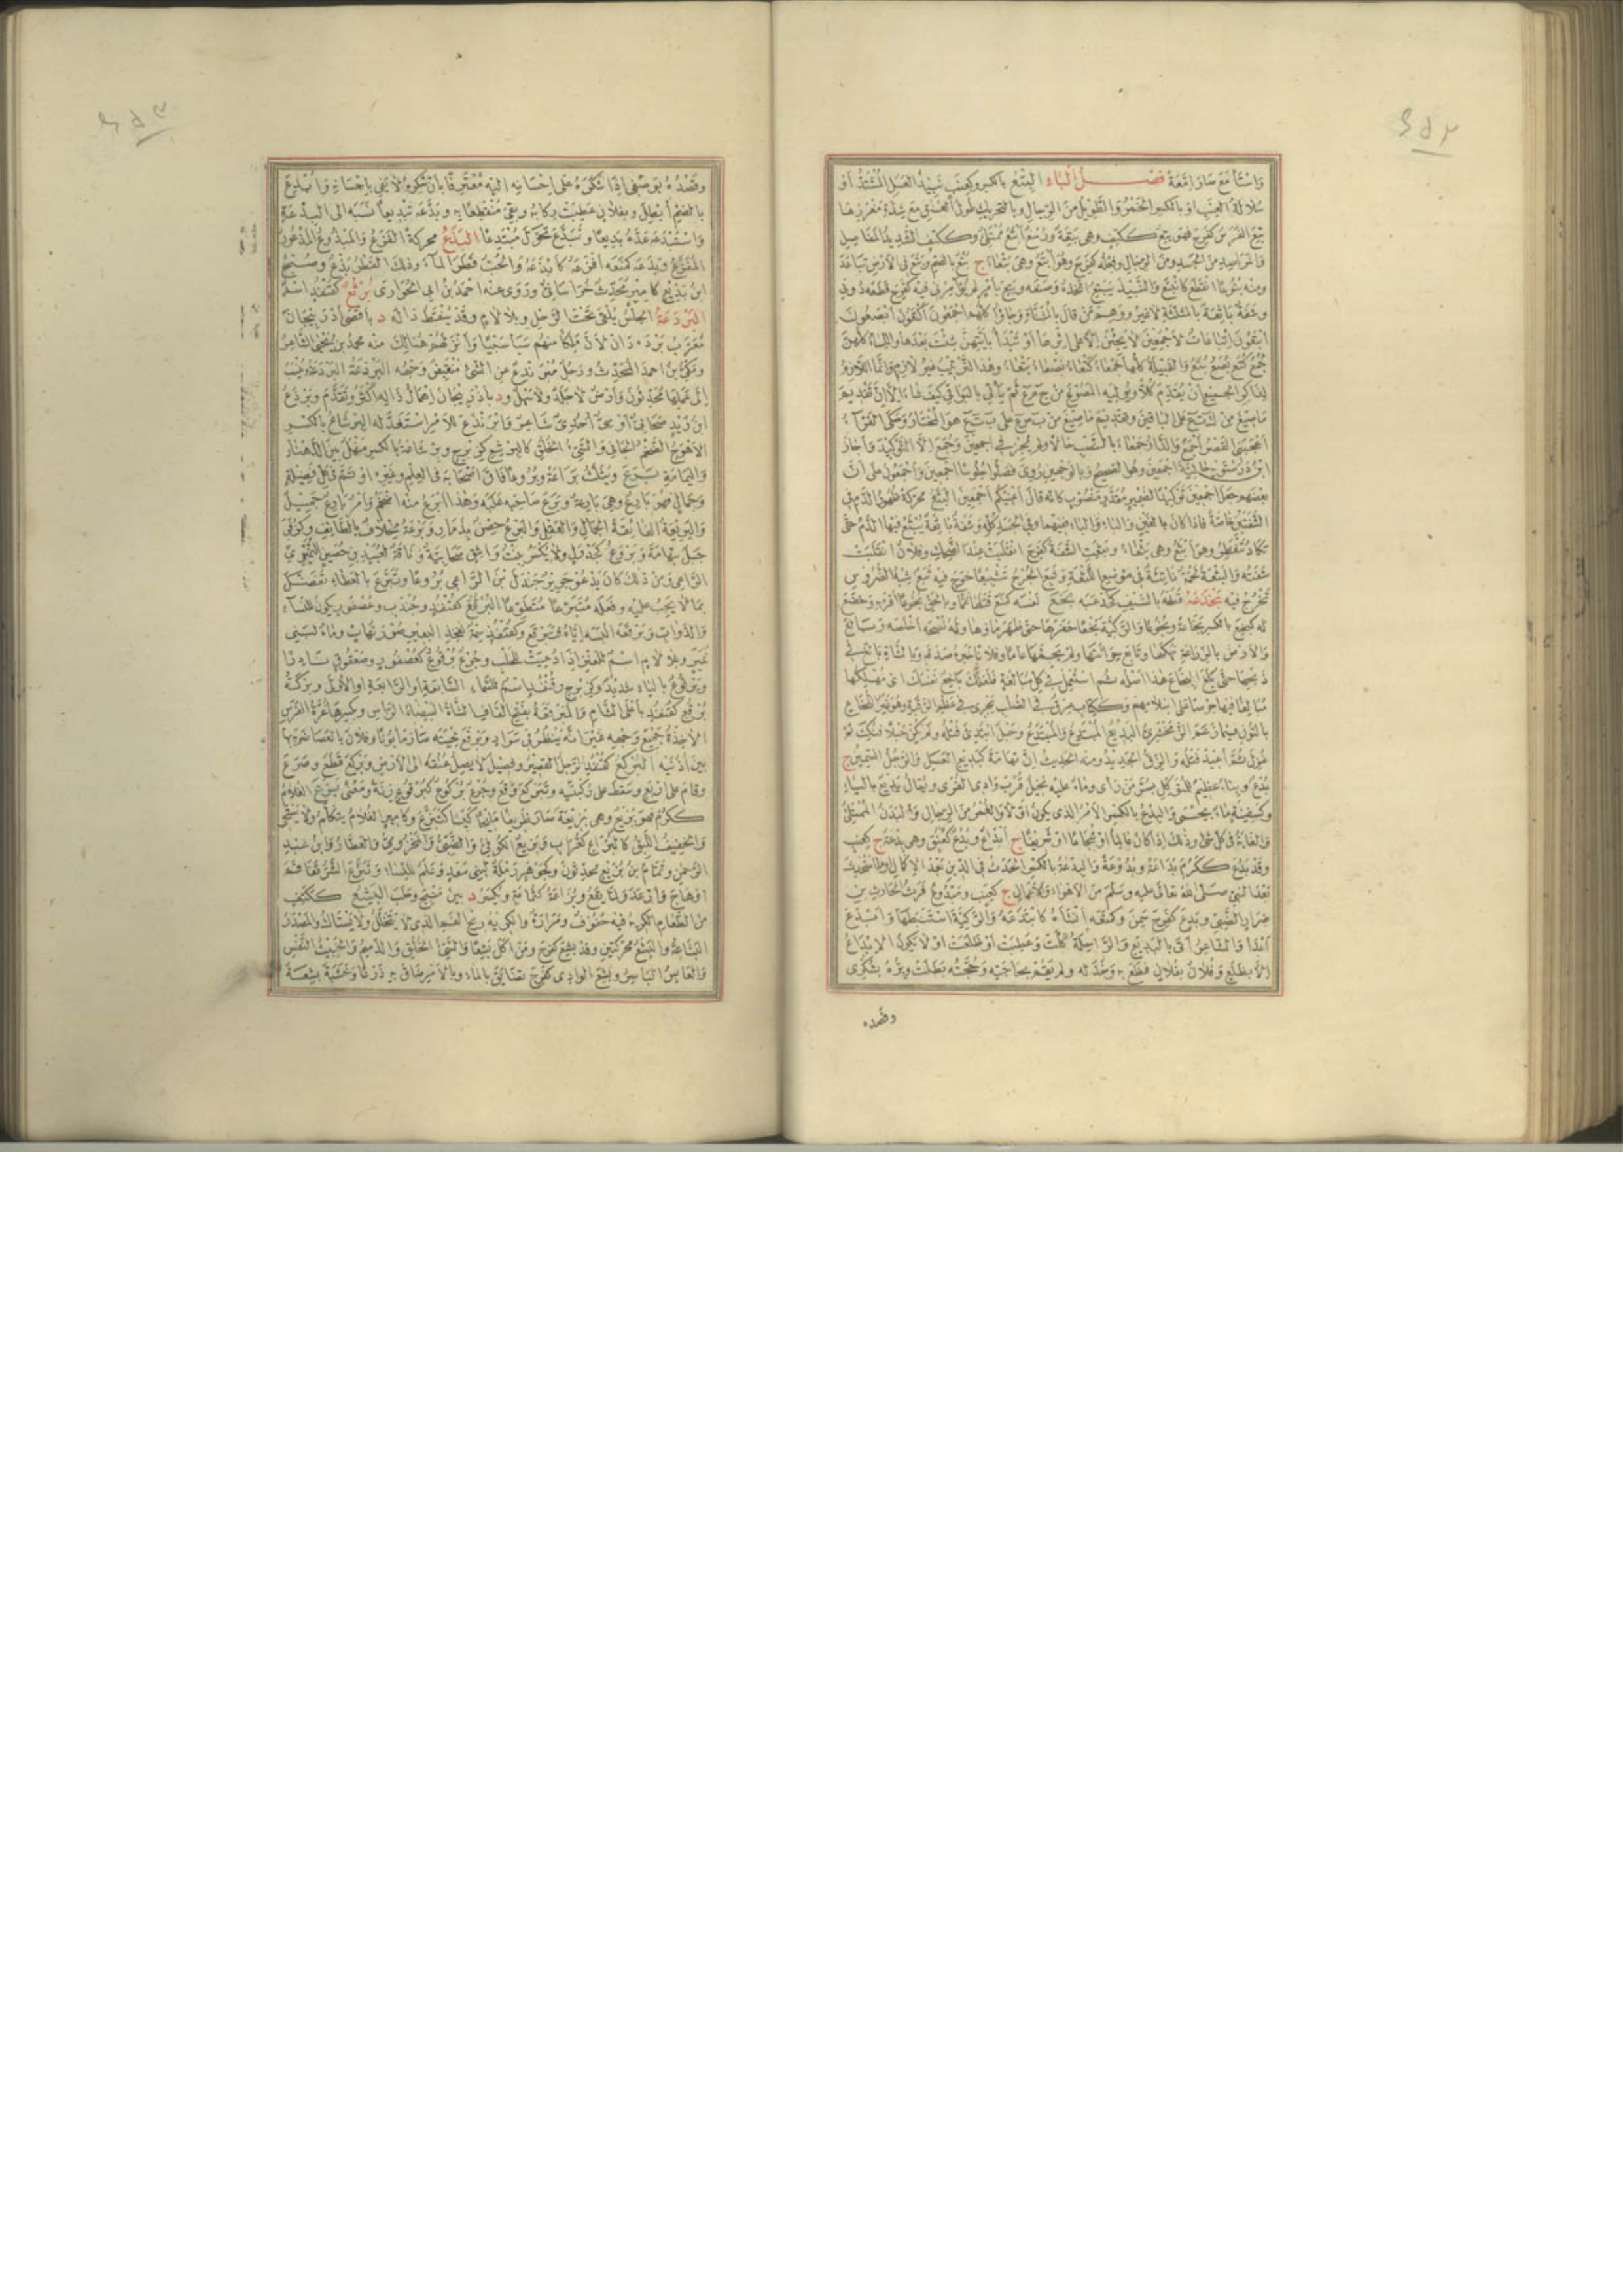 واستأمع صار امعة فصل الباء البتع بالكسر وكعنب نبيذ العسل المشتد او
سلالة العنب او بالكسر الخمر والطويل من الرجال وبالتحريك طول العنق مع شدة مغرزها
بتع الفرس كفرح فهو بتع ككتف وهى بتعة ورسغ ابتع ممتلئ وككتف الشديد المفاصل
والمواصل من الجسد ومن الرجال وفعله كفرح وهو ابتع وهى بتعاء ج بتع بالضم وبتع فى الارض تباعد
ومنه بتوعا انقطع كانبتع والنبيذ يبتع اتخذه وصنعه
وشفة باثعة بالمثلثة لا غير ووهم من قال بالمثناة وجاؤا كلهم اجمعون اكتعون ابصعون
ابتعون اتباعات لاجمعين لا يجئن الا على اثرها او تبدأ بايتهن شئت بعدها والنساء كلهن
جمع كتع بصع بتع والقبيلة كلها جمعاء كتعاء بصعاء بتعاء وهذا الترتيب غير لازم وانما اللازم
لذاكر الجميع ان يقدم كلا ويوليه المصوغ من ج م ع ثم ياتى بالبواقى كيف شاء الا ان تقديم
ما صيغ من ك ت ع على الباقين وتقديم ما صيغ من ب ص ع على ب ت ع هو المختار وحكى الفراء
اعجبنى القصر اجمع والدار جمعاء بالنصب حالا ولم يجز فى اجمعين وجمع الا التوكيد واجاز
ابن درستويه حالية اجمعين وهو الصحيح وبالوجهين روى فصلوا جلوسا اجمعين واجمعون على ان
بعضهم جعل اجمعين توكيدا لضمير مقدر منصوب كانه قال اعنيكم اجمعين البثع محركة ظهور الدم فى
الشفتين خاصة فاذا كان بالغين والتاء والباء ففيهما وفى الجسد كله وشفة باثعة يبثع فيها الدم حتى
تكاد تنفطر وهو ابثع وهى بثعاء وبثعت الشفة كفرح انقلبت عند الضحك وفلان انقلبت
شفته والبثعة لحمة ناتئة فى موضع اللثعة وبثع الجرح تبثيعا خرج فيه بثع شبه الضروس
تخرج فيه بخذعه قطعه بالسيف كخذعبه بخع نفسه كمنع قتلها غما وبالحق بخوعا اقر به وخضع
له كبخع بالكسر بخاعة وبخوعا والركية بخعا حفرها حتى ظهر ماؤها وله نصحه اخلصه وبالغ
والارض بالزراعة نهكها وتابع حراثتها ولم يجمها عاما وفلانا خبره صدقه وبالشاة بالغ فى
ذبحها حتى بلغ البخاع هذا اصله ثم استعمل فى كل مبالغة فلعلك باخع نفسك اى مهلكها
مبالغا فيها حرصا على اسلامهم وككتاب عرق فى الصلب يجرى فى عظم الرقبة وهو غير النخاع
بالنون فيما زعم الزمخشرى البديع المبتدع والمبتدع وحبل ابتدئ فتله ولم يكن حبلا فنكث ثم
غزل ثم اعيد فتله والزق الجديد ومنه الحديث ان تهامة كبديع العسل والرجل السمين ج
بدع وبناء عظيم للمتوكل بسر من رأى وماء عليه نخيل قرب وادى القرى ويقال يديع بالياء
وكسفينة ماء بحسمى والبدع بالكسر الامر الذى يكون اولا والغمر من الرجال والبدن الممتلئ
والغاية فى كل شئ وذلك اذا كان عالما او شجاعا او شريفا ج ابداع وبدع كعنق وهى بدعة ج كعنب
وقد بدع ككرم بداعة وبدوعا والبدعة بالكسر الحدث فى الدين بعد الاكمال او ما استحدث
بعد النبى صلى الله تعالى عليه وسلم من الاهواء والاعمال ج كعنب ومبدوع فرس الحارث بن
ضرار الضبى وبدع كفرح سمن وكمنعه انشأه كابتدعه والركية استنبطها وابدع
ابدأ والشاعر اتى بالبديع والراحلة كلت وعطبت او ظلعت او لا يكون الابداع
الا بظلع وفلان بفلان فظع به وخذله ولم يقم بحاجته وحجته بطلت وبره بشكرى
وقصده
وقصده بوصفى اذا شكره على احسانه اليه معترفا بان شكره لا يفى باحسانه وابدع
بالضم ابطل وبفلان عطبت ركابه وبقى منقطعا به وبدعه تبديعا نسبه الى البدعة
واستبدعه عده بديعا وتبدع تحول مبتدعا البذع محركة الفزع والمبذوع المذعور
المفزع وبذعه كمنعه افزعه كابذعه والحب قطر الماء وذلك القطر بذع وصبيح
ابن بذيع كامير محدث خراسانى وروى عنه احمد بن ابى الحوارى برثع كقنفذ اسم
البردعة الحلس يلقى تحت الرحل وبلا لام وقد ينقط داله د باقصى اذربيجان
معرب برده دان لان ملكا منهم سبا سبيا وانزلهم هنالك منه محمد بن يحيى الشاعر
ومكى بن احمد المحدث ورجل مبرندع عن الشئ منقبض وجهه البرذعة البردعة ونسب
الى عملها محدثون وارض لا جلد ولا سهل ود باذربيجان اهمال ذاله اكثر وتقدم وبرذع
ابن زيد صحابى اوسى احدى شاعر وابرنذع للامر استعد له البرشاع بالكسر
الاهوج الضخم الجافى والسيئ الخلق كالبرشع كزبرج وبرشاعة بالكسر منهل بين الدهناء
واليمامة برع ويثلث براعة وبروعا فاق اصحابه فى العلم وغيره او تم فى كل فضيلة
وجمال فهو بارع وهى بارعة وبرع صاحبه غلبه وهذا ابرع منه اضخم وامر بارع جميل
والبريعة الفائقة الجمال والعقل والبرع حصن بذمار وبرعة مخلاف بالطائف وكزفر
جبل بتهامة وبروع كجدول ولا يكسر بنت واشق صحابية وناقة لعبيد بن حصين النميرى
الراعى ومن ذلك كان يدعو جرير جندل بن الراعى بروعا وتبرع بالعطاء تفضل
بما لا يجب عليه وفعله متبرعا متطوعا البرقع كقنفذ وجندب وعصفور يكون للنساء
والدواب وبرقعه البسه اياه فتبرقع وكقنفذ سمة لفخذ البعير وماء لبنى
نمير وبلا لام اسم للعنز اذا دعيت للحلب وجوع برقوع كعصفور وصعفوق نادرا
ويرقوع بالياء شديد وكزبرج وقنفذ اسم للسماء السابعة او الرابعة او الاولى وبركة
برقع كقنفذ باعلى الشام والمبرقعة بفتح القاف الشاة البيضاء الراس وبكسرها غرة الفرس
الآخذة جميع وجهه غير انه ينظر فى سواد وبرقع لحيته صار مابونا وفلانا بالعصا ضربه بها
بين اذنيه البركع كقنفذ الرجل القصير وفصيل لا يصل عنقه الى الارض وبركع قطع وصرع
وقام على اربع وسقط على ركبتيه وتبركع وقع وجوع بركوع كبرقوع زنة ومعنى بزع الغلام
ككرم فهو بزيع وهى بزيعة صار ظريفا مليحا كيسا كتبزع وكامير الغلام يتكلم ولا يستحى
والخفيف اللبق كالبزاع كغراب وبزيع الكوفى والضبى والمخزومى والعطار وابن عبد
الرحمن وتمام بن بزيع محدثون وكجوهر رملة لبنى سعد وعلم للنساء وتبزع الشر تفاقم
او هاج وارعد ولما يقع وبزاعة كثمامة ويكسر د بين منبج وحلب البشع ككتف
من الطعام الكريه فيه حفوف ومرارة والكريه ريح الفم الذى لا يتخلل ولا يستاك والمصدر
البشاعة والبشع محركتين وقد بشع كفرح ومن اكل بشعا والسيئ الخلق والدميم والخبيث النفس
والعابس الباسر وبشع الوادى كفرح تضايق بالماء وبالامر ضاق به ذرعا وخشبة بشعة